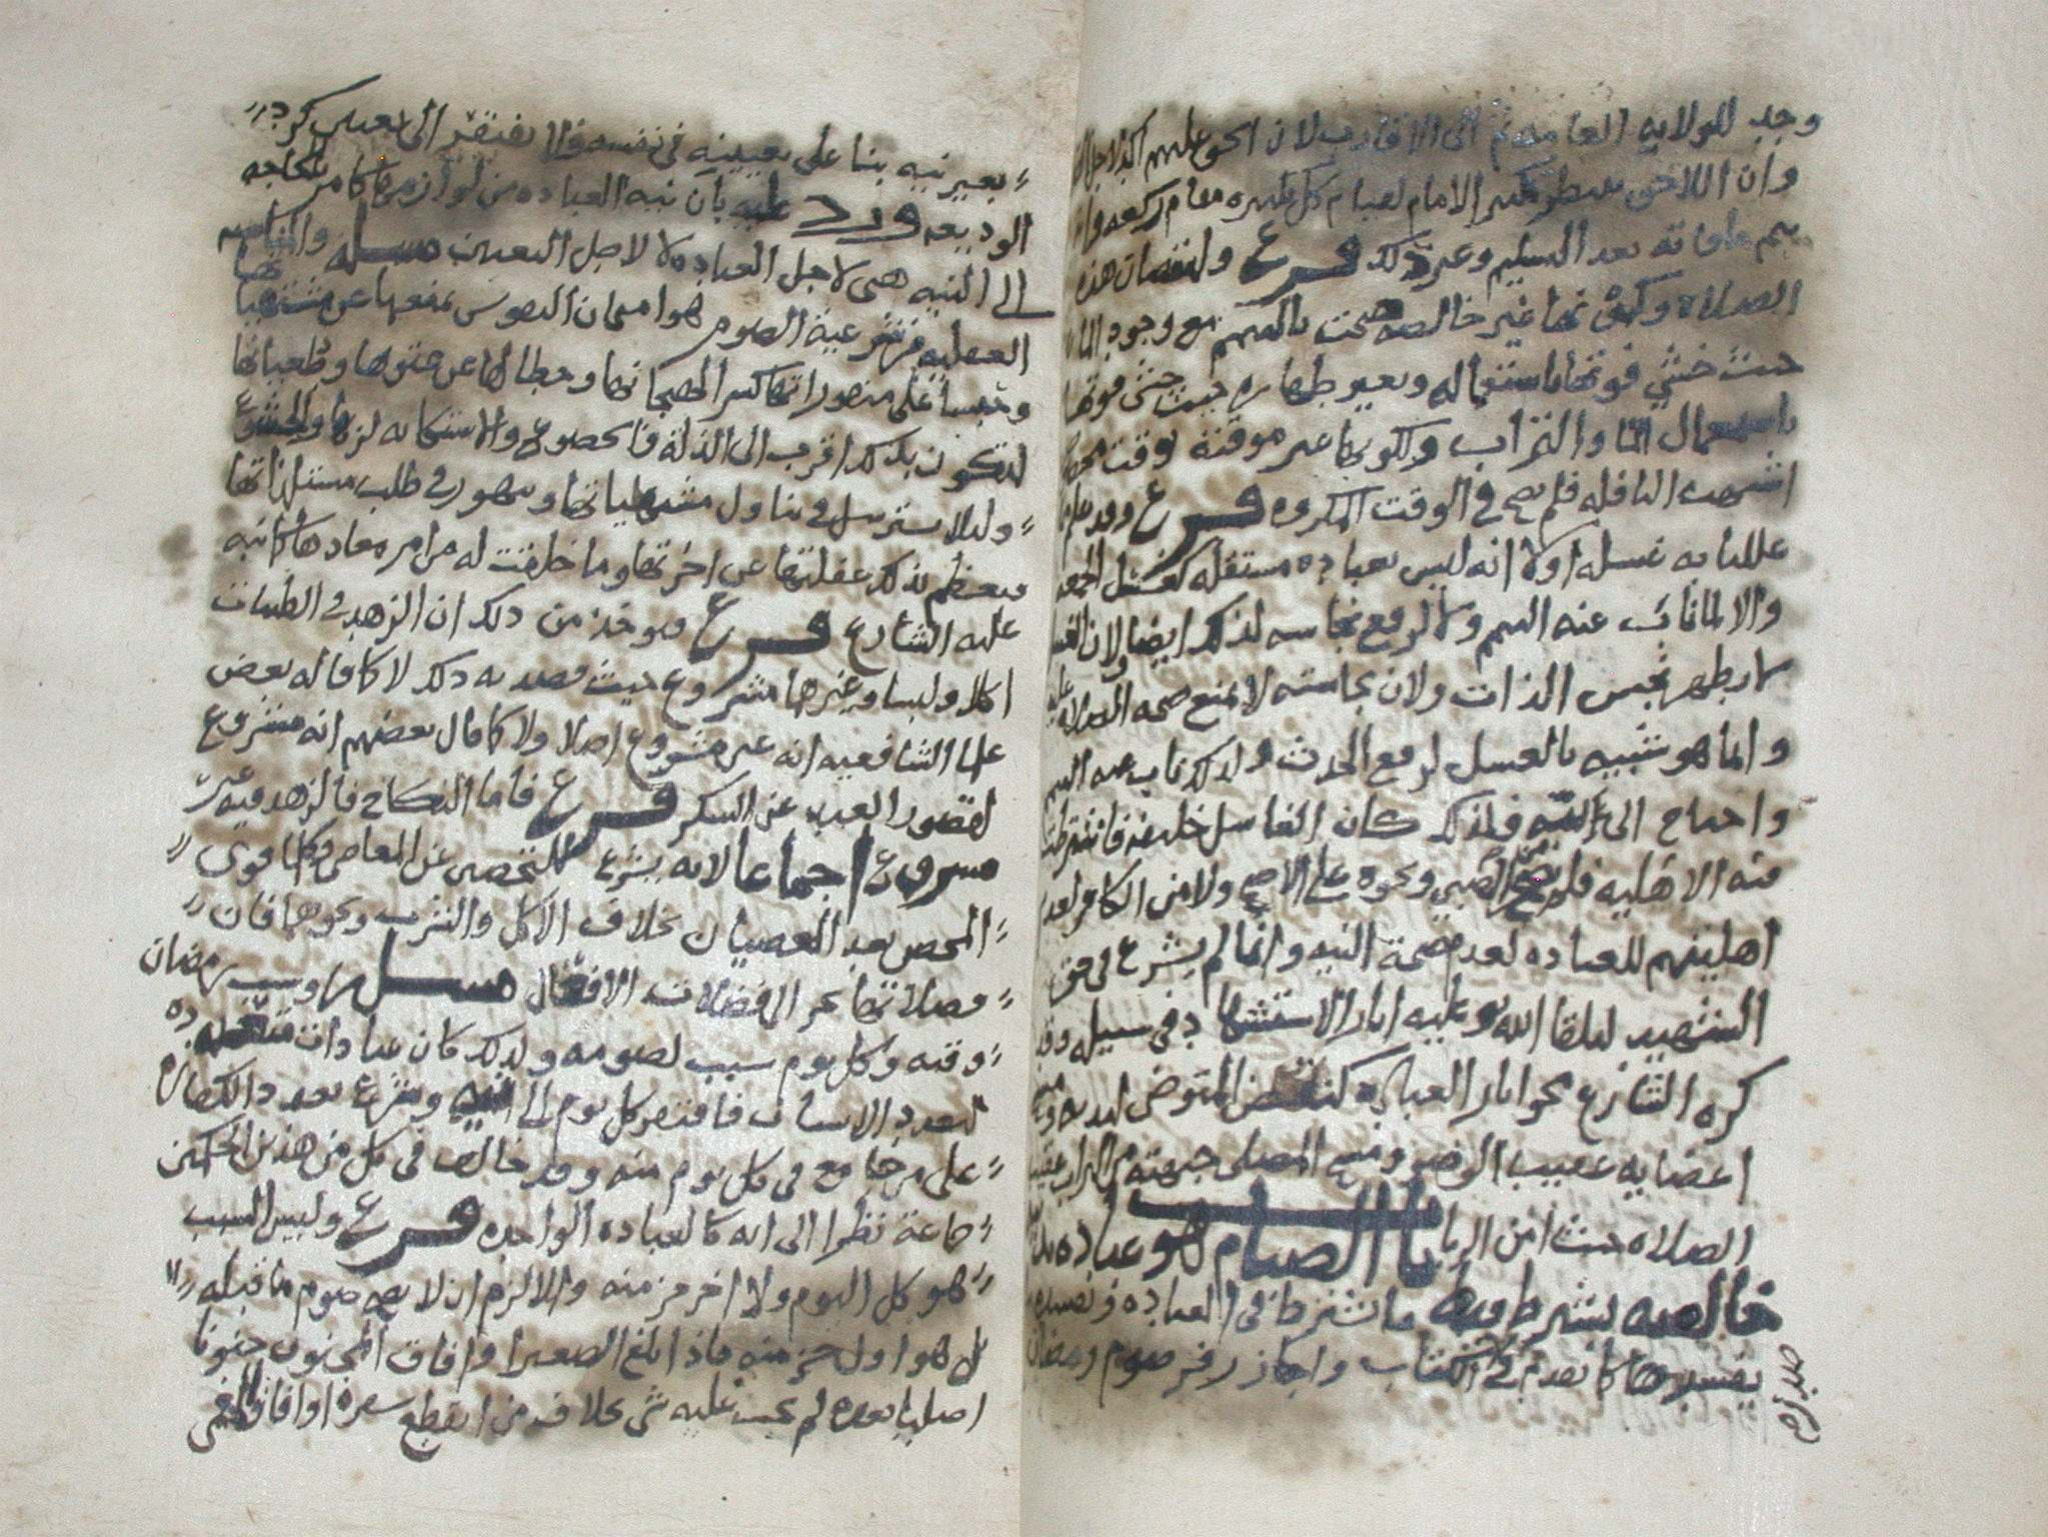 وجد للولايه العامه ثم الى الاقارب لان الحق عليهم اكد
وان اللاحق ينتظر تكبير الامام لقيام كل تكبيره مقام ركعه
يتم ما فاته بعد التسليم وغير ذلك فرع ولنقصان هذه
الصلاة وكونها غير خالصه صحت بالتيمم مع وجود الما
حيث خشي فوتها باستعماله وبغير طهاره حيث خشي فوتها
باستعمال الما والتراب ولكونها غير موقتة بوقت
اشبهت النافله فلم تصح في الوقت المكروه فرع وقد علم
عللنا به غسله اولا انه ليس بعباده مستقله كغسل الجمعه
والا لما ناب عنه التيمم ولا لرفع نجاسه لذلك ايضا ولان الغسل
لا يطهر نجس الذات ولان نجاسته لا تمنع صحه الصلاه عليه
وانما هو شبيه بالغسل لرفع الحدث ولذلك ناب عنه التيمم
واحتاج الى النيه فلذلك كان الغاسل خليفه فاشترطت
فيه الاهليه فلم يصح من الصبي ونحوه على الاصح ولا من الكافر لعدم
اهليتهم للعباده لعدم صحة النيه وانما لم يشرع في حق
الشهيد ليلقا الله وعليه اثار الاستشهاد في سبيله وقد
كره الشارع محو اثار العباده كنفض المتوضى ليديه
اعضايه عقيب الوضو ومسح المصلى جبهته من التراب عقيب
الصلاه حيث امن الريا باب الصيام هو عباده
خالصه يشترط فيه ما يشترط في العباده ويفسده
يفسدها كما تقدم في الكتاب واجاز زفر صوم رمضان
بغير نيه بنا على تعيينه في نفسه فلا يفتقر الى تعيين كرد
الوديعه ورد عليه بان نيه العباده من لوازمها كما مر فالحاجه
الى النيه هي لاجل العباده لا لاجل التعيين مسله والمناسبه
العقليه في شرعية الصوم هو امتحان النفوس بمنعها عن مشتهياتها
وحبسا على منفوراتها كسرا لهيجانها وحطا لها عن عتوها وطغيانها
لتكون بذلك اقرب الى الذلة والخضوع والاستكانه لربها والخشوع
وليلا تسترسل في تناول مشتهياتها وتتهور في طلب مستلذاتها
فتعظم بذلك غفلتها عن اخرتها وما خلقت له من امر معادها كما نبه
عليه الشارع فرع ويوخذ من ذلك ان الزهد في الطيبات
اكلا ولبسا وغيرها مشروع حيث قصد به ذلك لا كما قاله بعض
علما الشافعيه انه غير مشروع اصلا ولا كما قال بعضهم انه مشروع
لقصور العبد عن الشكر فرع فاما النكاح فالزهد فيه غير
مشروع اجماعا لانه يشرع للتحصن عن المعاصي وكلما قوى
التحصن بعد العصيان بخلاف الاكل والشرب ونحوها فان
فضلاتها تجر الى فضلات الافعال مسله وسبب رمضان
وقته وكل يوم سبب لصومه ولذلك كان عبادات متعدده
لتعدد الاسباب فافتقر كل يوم الى النيه وشرع تعدد الكفاره
على من جامع في كل يوم منه وقد خالف في كل من هذين الحكمين
جماعة نظرا الى انه كالعباده الواحده فرع وليس السبب
هو كل اليوم ولا اخر جز منه والا لزم ان لا يصح صوم ما قبله
بل هو اول جز منه فاذا بلغ الصغير او افاق المجنون جنونا
اصليا بعده لم يجب عليه شي بخلاف من انقطع سفره او افاق المغمى